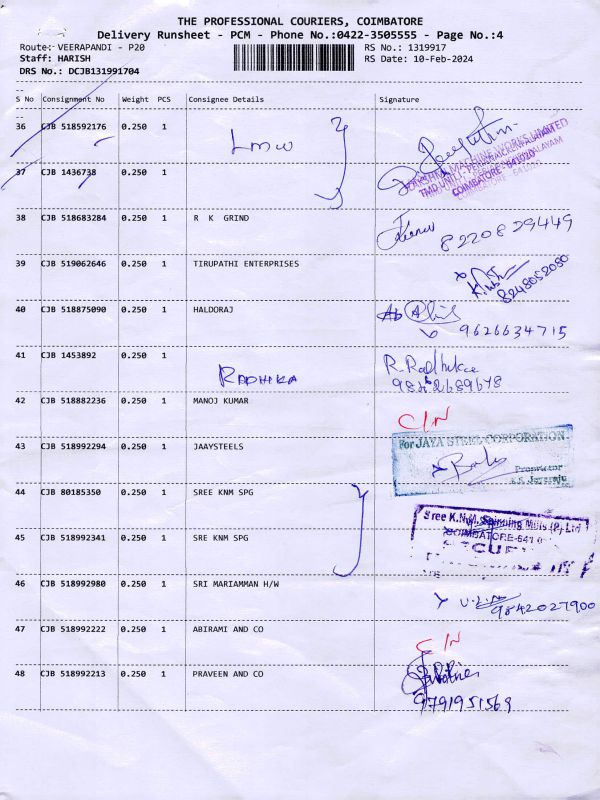 THE PROFESSIONAL COURIERS, COIMBATORE
Delivery Runsheet - PCM - Phone No.:0422-3505555 - Page No.:4
Route:- VEERAPANDI - P20 RS No.: 1319917
Staff: HARISH RS Date: 10-Feb-2024
DRS No.: DCJB131991704
S No Consignment No Weight PCS Consignee Details Signature
36 CJB 518592176 0.250 1 Lmw
COIMBATORE - 641020
37 CJB 1436738 0.250 1
38 CJB 518683284 0.250 1 R K GRIND
8220829449
39 CJB 519062646 0.250 1 TIRUPATHI ENTERPRISES
8248052050
40 CJB 518875090 0.250 1 HALDORAJ
9626634715
41 CJB 1453892 0.250 1 RADHIKA R. Radhika
42 CJB 518882236 0.250 1 MANOJ KUMAR
C/N
43 CJB 518992294 0.250 1 JAAYSTEELS For JAYA STEEL CORPORATION
Proprietor
44 CJB 80185350 0.250 1 SREE KNM SPG
Sree K.N.M. Spinning Mills (P) Ltd
45 CJB 518992341 0.250 1 SRE KNM SPG
46 CJB 518992980 0.250 1 SRI MARIAMMAN H/W
9842027900
47 CJB 518992222 0.250 1 ABIRAMI AND CO
C/N
48 CJB 518992213 0.250 1 PRAVEEN AND CO
9791951569